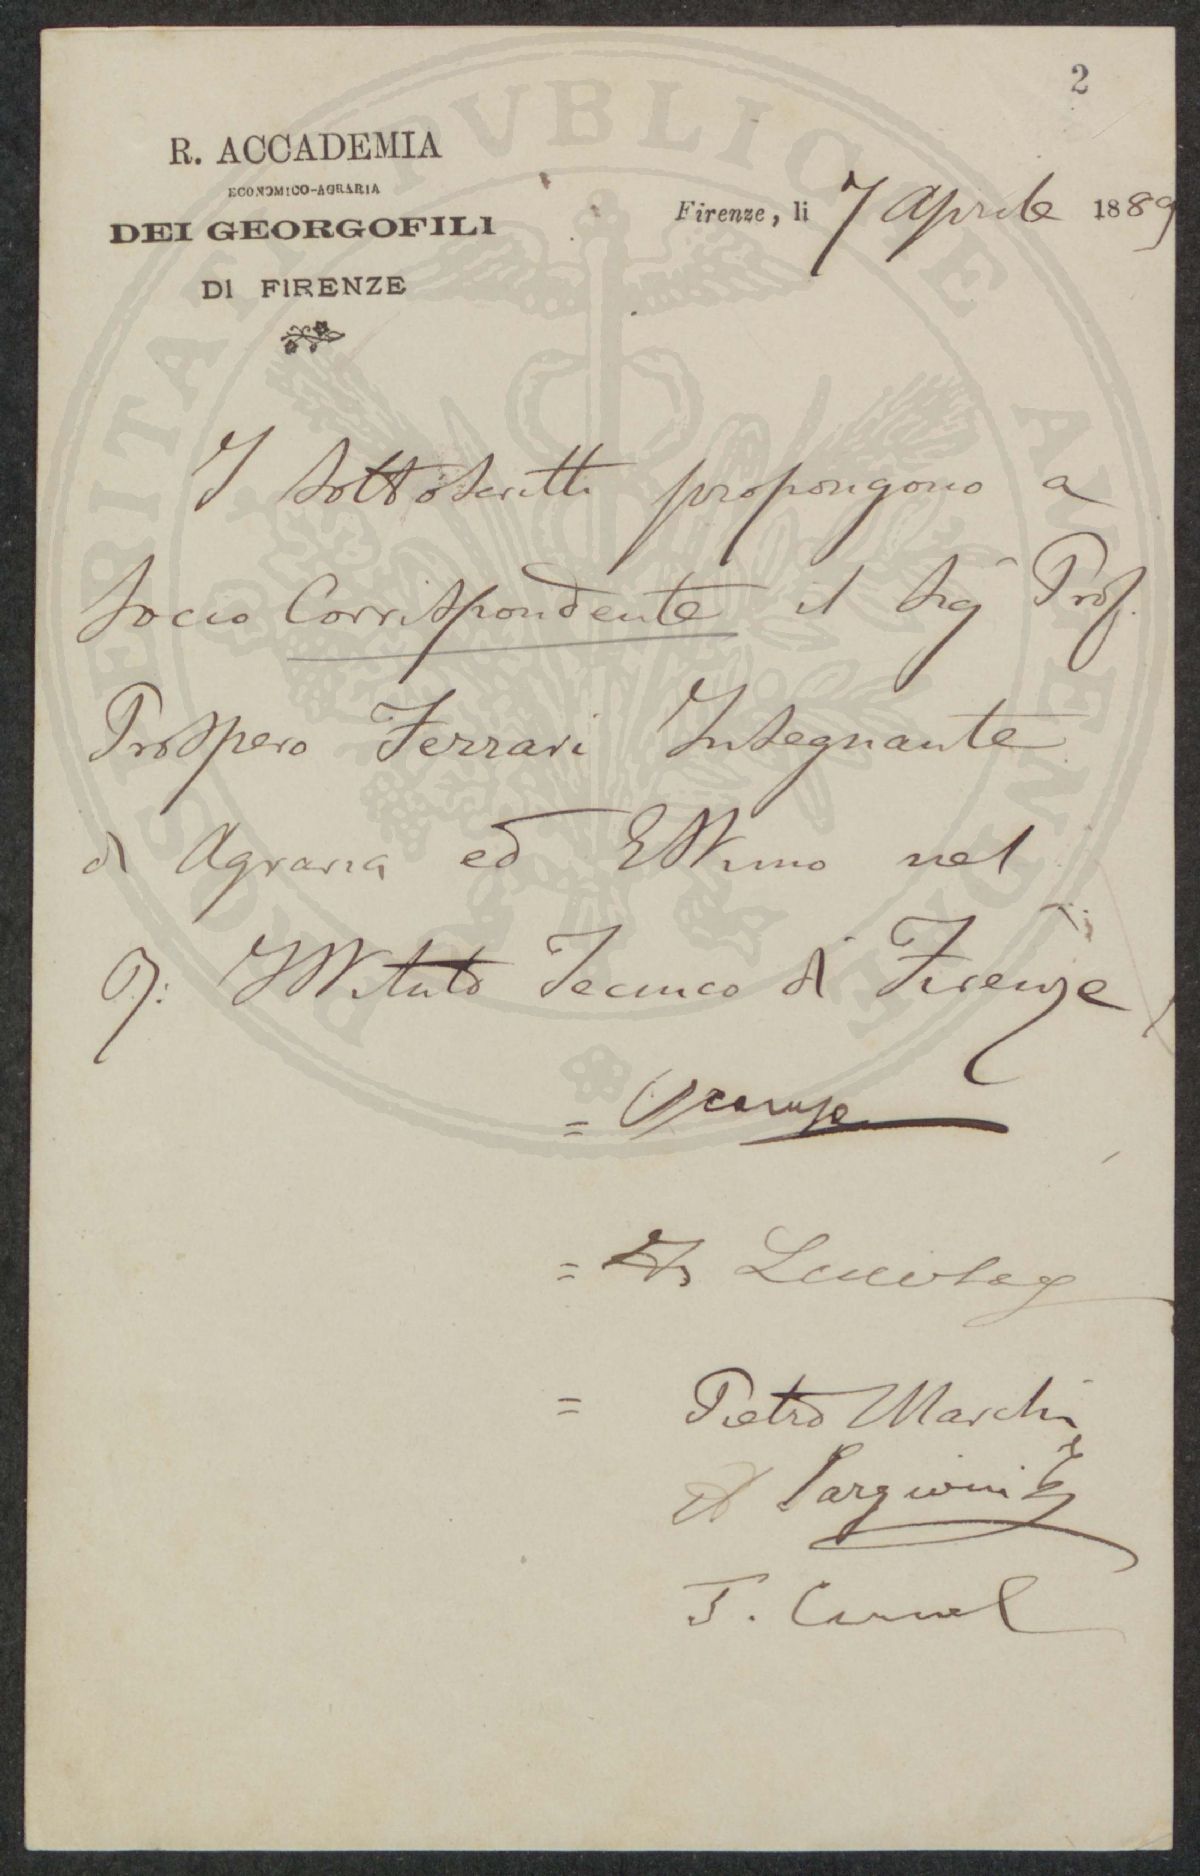 2
R. ACCADEMIA
ECONOMICO-AGRARIA
DEI GEORGOFILI
DI FIRENZE
Firenze, li 7 Aprile 1889
I sottoscritti propongono a
Socio Corrispondente il Sig Prof.
Prospero Ferrari Insegnante
di Agraria ed Estimo nel
R: Istituto Tecnico di Firenze
=
=
= Pietro Marchi
T. Caruel
PROSPERITATI PUBLICAE AUGENDAE